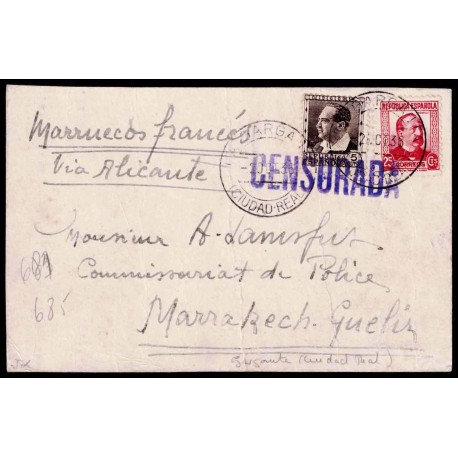 Marruecos francés
Via Alicante
REPUBLICA ESPAÑOLA
25 CORREOS Cts
CENSURADA
(CIUDAD-REAL)
Monsieur A.
Commissariat de Police
Marrakech-Gueliz
689
635
(Ciudad Real)